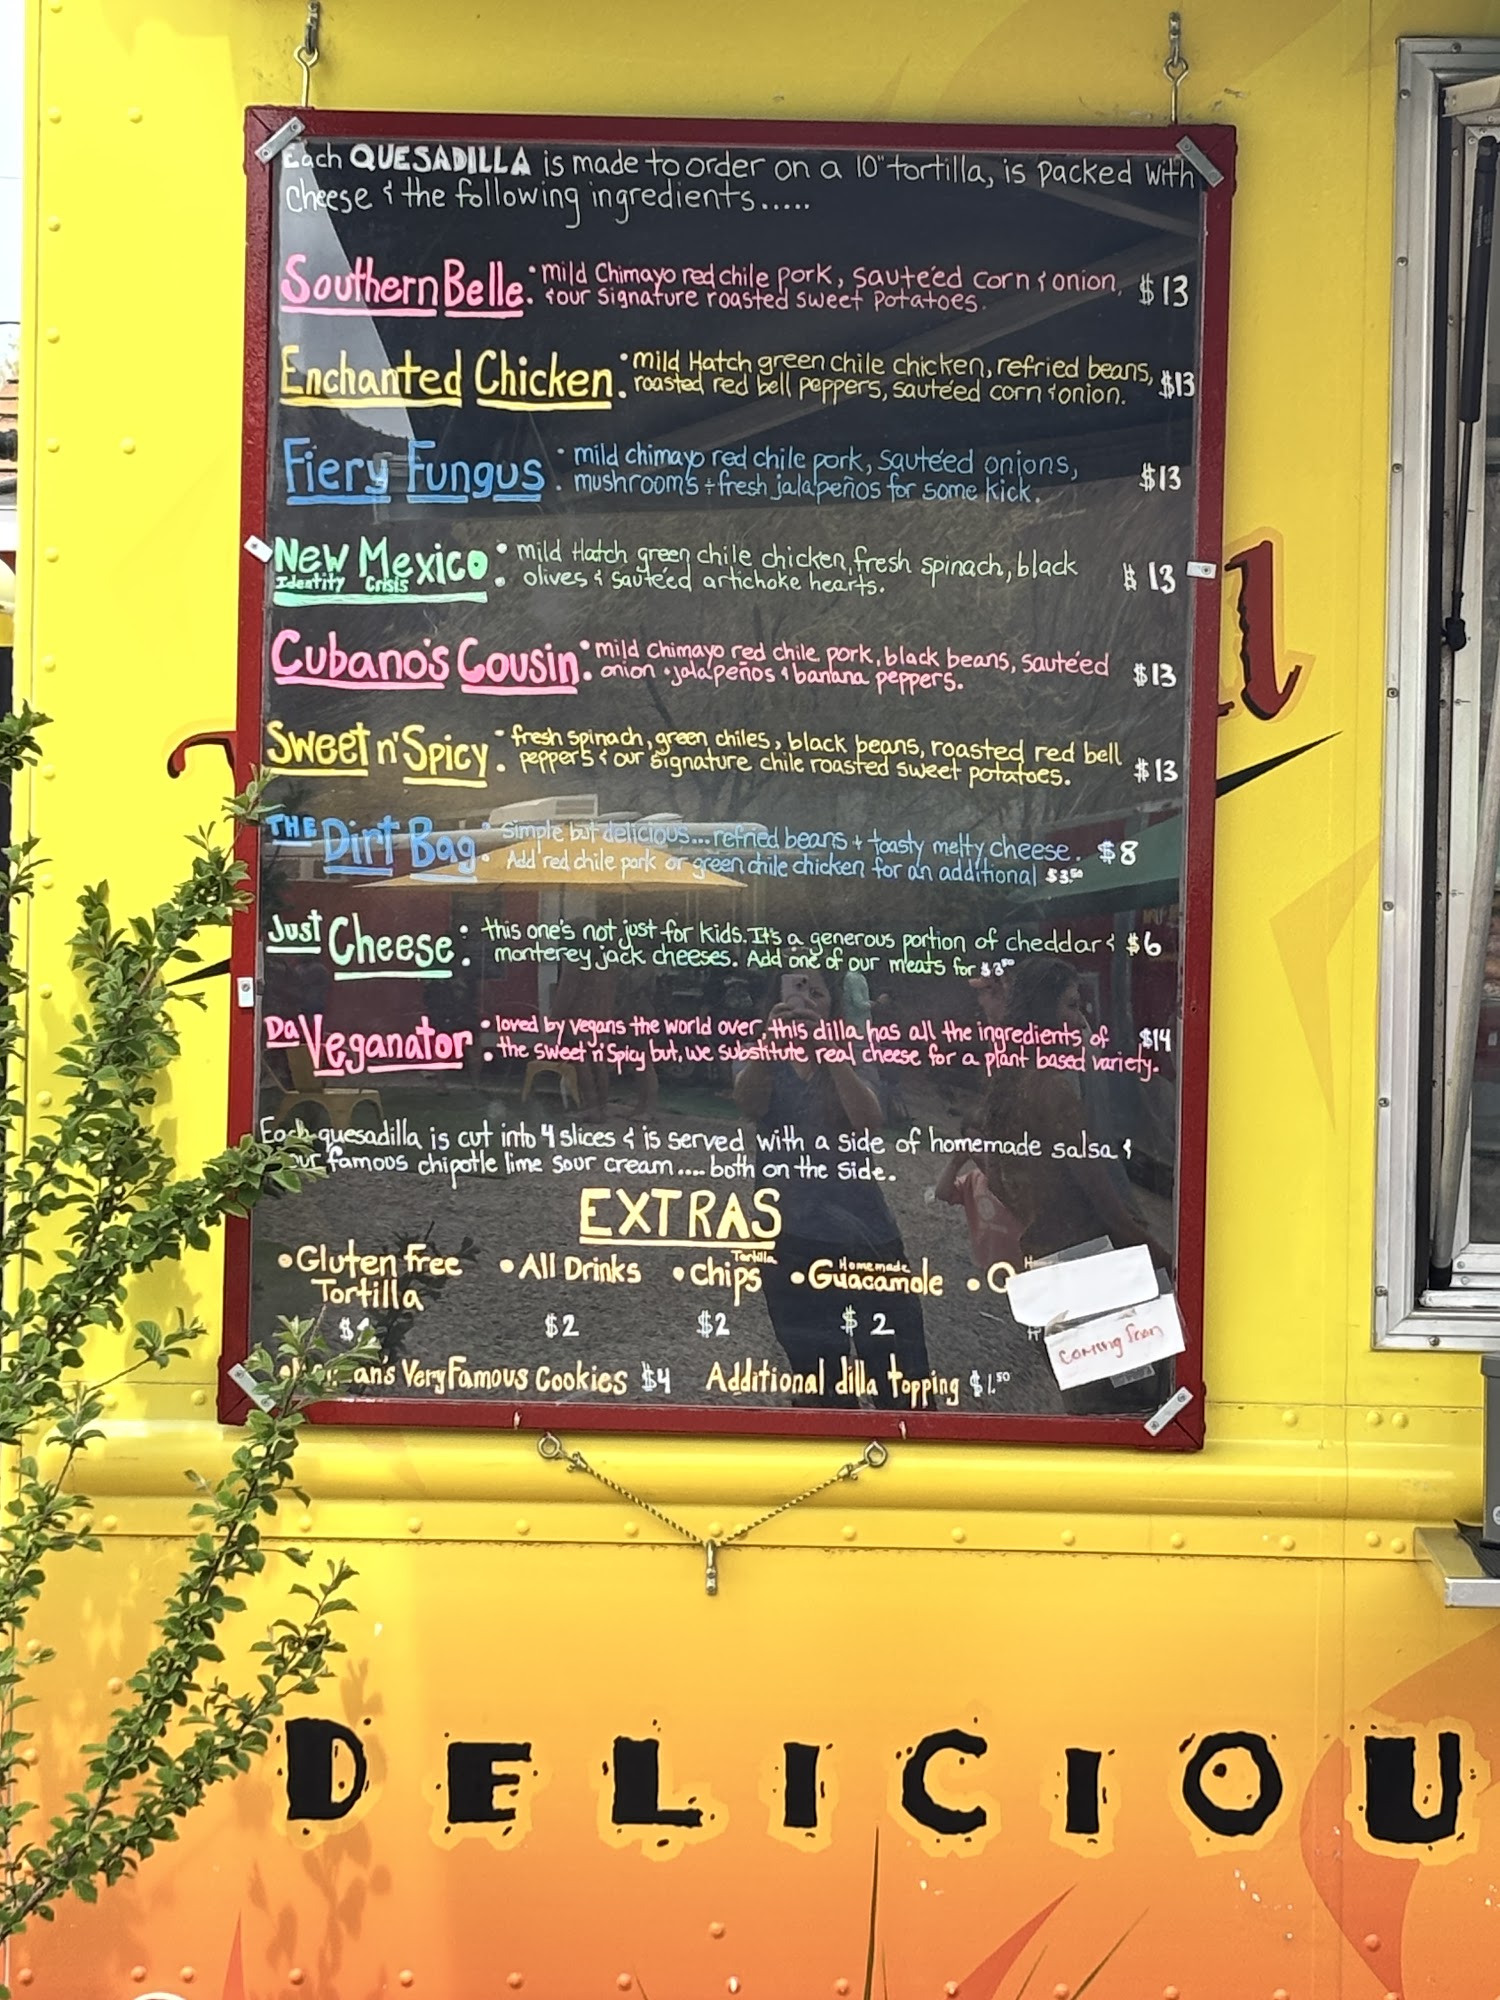 Each QUESADILLA is made to order on a 10" tortilla, is packed with
cheese & the following ingredients.....
Southern Belle: mild Chimayo red chile pork, sauteéd corn & onion, $13
& our signature roasted sweet potatoes.
Enchanted Chicken: mild Hatch green chile chicken, refried beans, $13
roasted red bell peppers, sauteéd corn & onion.
Fiery Fungus: mild chimayo red chile pork, sauteéd onions, $13
mushrooms + fresh jalapeños for some kick.
New Mexico: mild Hatch green chile chicken, fresh spinach, black $13
Identity Crisis olives & sauteéd artichoke hearts.
Cubano's Cousin: mild chimayo red chile pork, black beans, sauteéd $13
onion • jalapeños & banana peppers.
Sweet n' Spicy: fresh spinach, green chiles, black beans, roasted red bell $13
peppers & our signature chile roasted sweet potatoes.
THE Dirt Bag: simple but delicious...refried beans + toasty melty cheese. $8
Add red chile pork or green chile chicken for an additional $3.50
Just Cheese: this one's not just for kids. It's a generous portion of cheddar & $6
monterey jack cheeses. Add one of our meats for $3.50
Da Veganator: loved by vegans the world over, this dilla has all the ingredients of $14
the sweet n' Spicy but, we substitute real cheese for a plant based variety.
Each quesadilla is cut into 4 slices & is served with a side of homemade salsa &
our famous chipotle lime sour cream.... both on the side.
EXTRAS
• Gluten free • All Drinks • Tortilla Chips • Homemade Guacamole
Tortilla
$2 $2 $2
Very Famous Cookies $4 Additional dilla topping $1.50
coming soon
DELICIOU